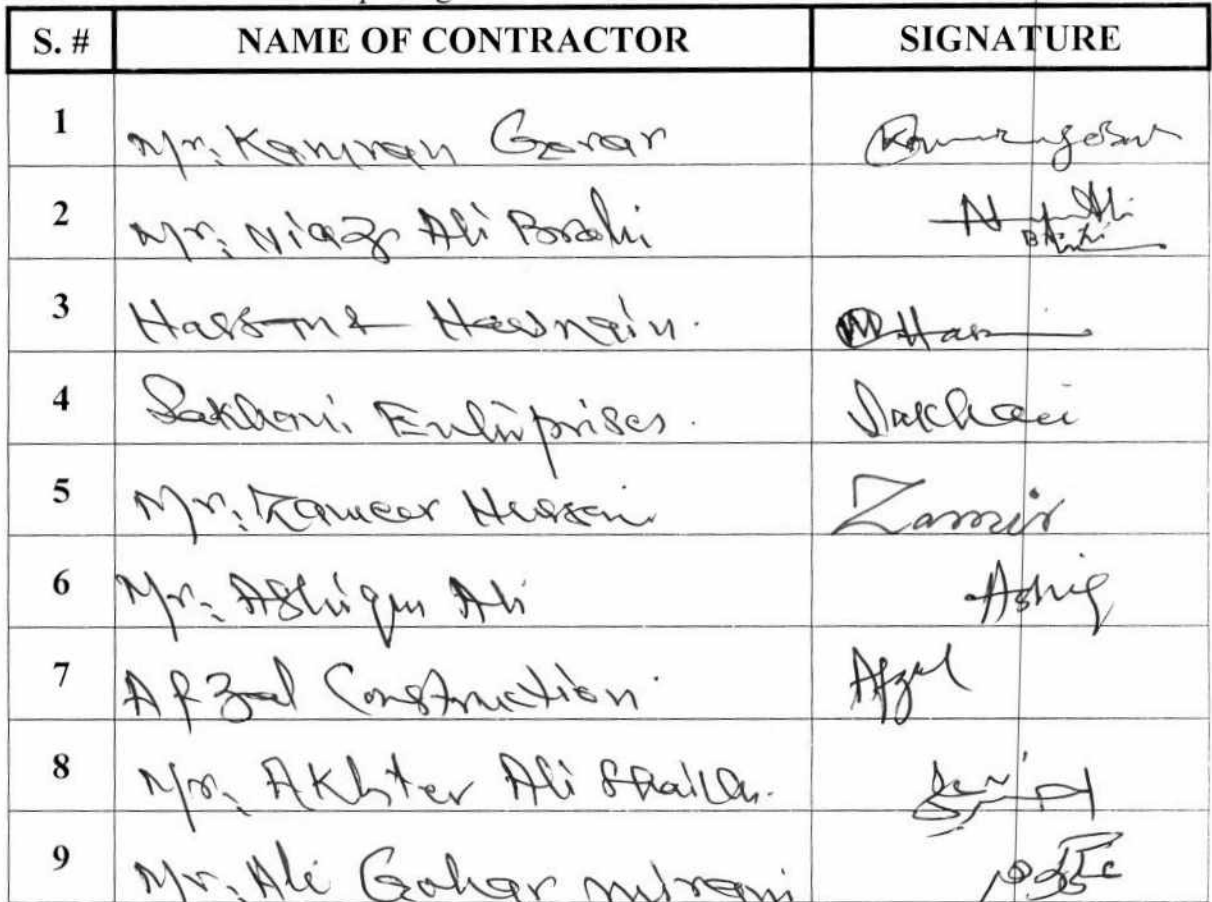 S. # NAME OF CONTRACTOR SIGNATURE
1 Mr. Kamran Gorar
2 Mr. Niaz Ali Brohi
3 Hassan & Hasnain.
4 Lakhani Enterprises. Lakhani
5 Mr. Zameer Hussain Zamir
6 Mr. Ashique Ali Ashiq
7 Afzal Construction. Afzal
8 Mr. Akhter Ali Shaikh.
9 Mr. Ali Gohar Mirani